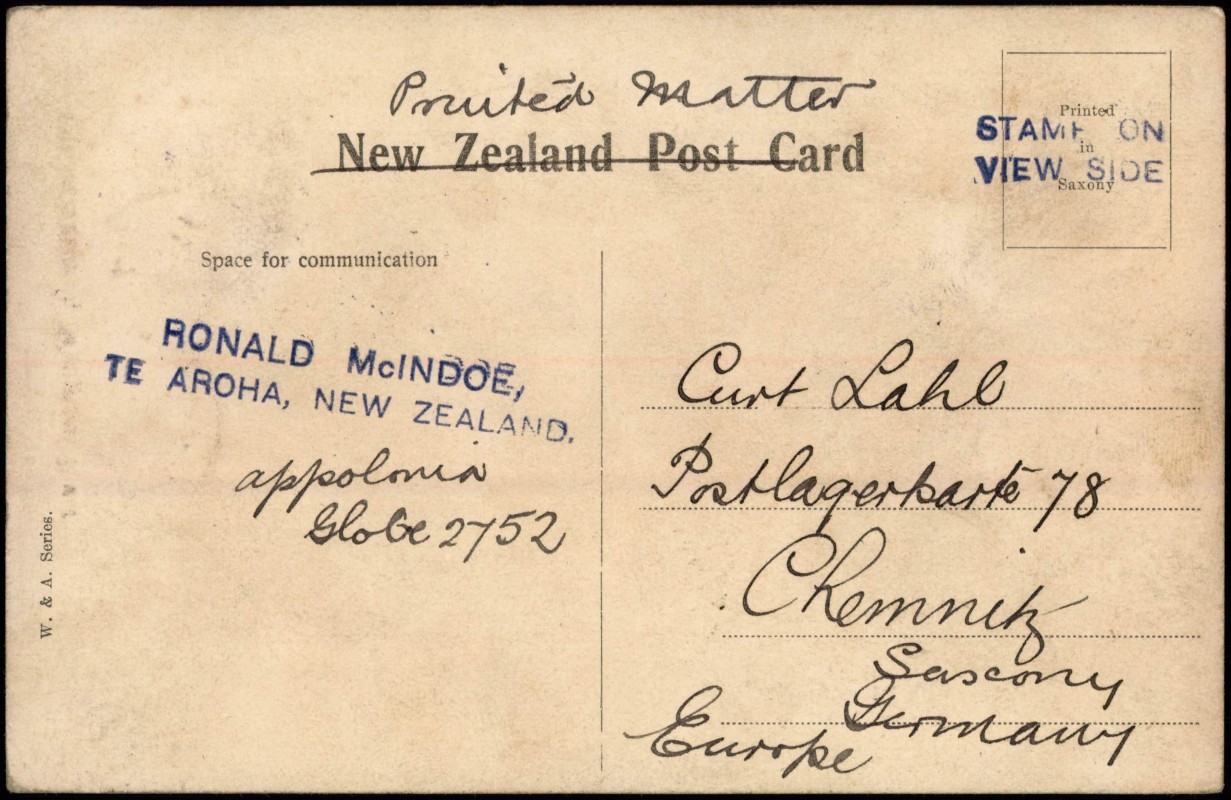 Printed Matter
New Zealand Post Card
Printed
in
Saxony
STAMP ON
VIEW SIDE
Space for communication
RONALD McINDOE,
TE AROHA, NEW ZEALAND.
appolonia
Globe 2752
W. & A. Series.
Curt Lahl
Postlagerkarte 78
Chemnitz
Sascony
Germany
Europe